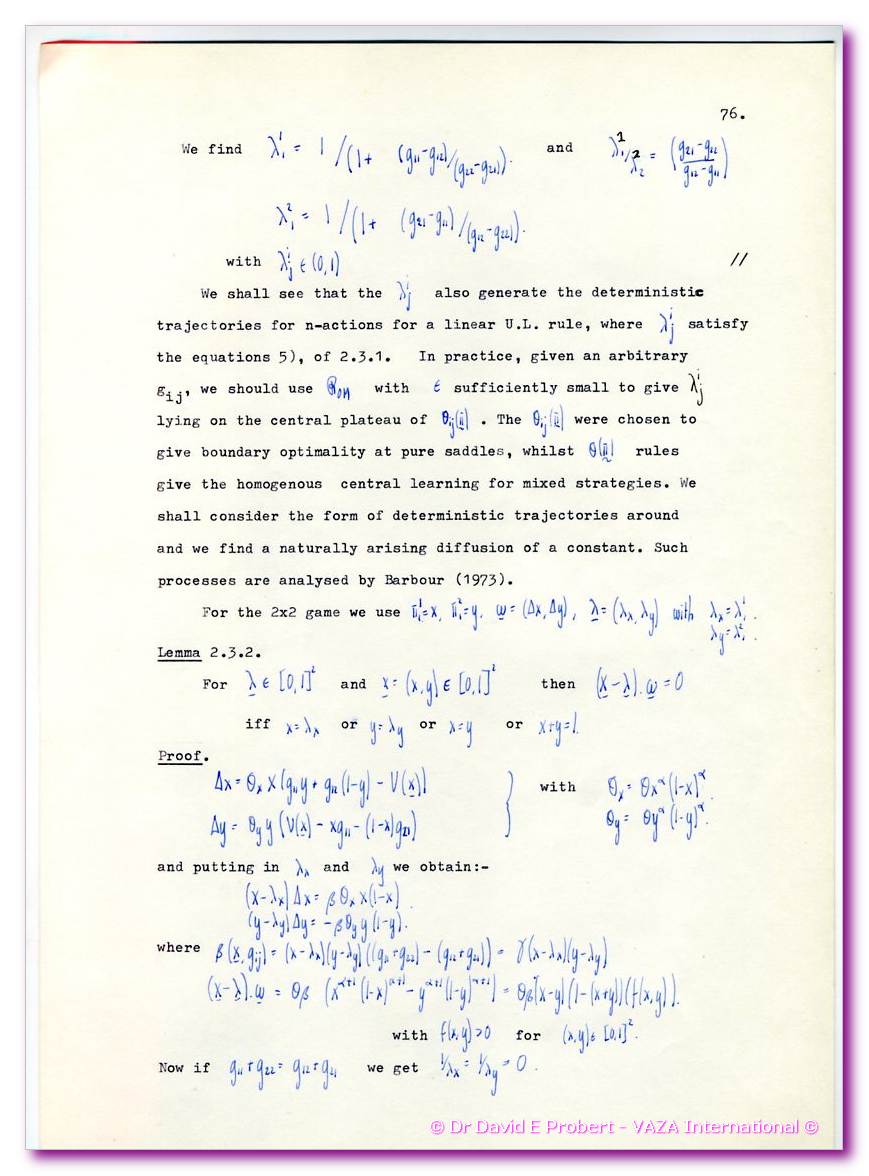 76.
We find λ¹₁ = 1 /(1+ (g₁₁-g₁₂)/(g₂₂-g₂₁)). and λ¹₁/λ²₂ = (g₂₁-g₂₂ / g₁₂-g₁₁)
λ²₁ = 1 /(1+ (g₂₁-g₁₁)/(g₁₂-g₂₂)).
with λⁱⱼ ∈ (0,1) //
We shall see that the λⁱⱼ also generate the deterministic
trajectories for n-actions for a linear U.L. rule, where λⁱⱼ satisfy
the equations 5), of 2.3.1. In practice, given an arbitrary
gᵢⱼ, we should use with ε sufficiently small to give λⁱⱼ
lying on the central plateau of θᵢⱼ(π̲) . The θᵢⱼ(π̲) were chosen to
give boundary optimality at pure saddles, whilst θ(π̲) rules
give the homogenous central learning for mixed strategies. We
shall consider the form of deterministic trajectories around
and we find a naturally arising diffusion of a constant. Such
processes are analysed by Barbour (1973).
For the 2x2 game we use π¹₁=x, π²₁=y, ω̲ = (Δx, Δy), λ̲ = (λₓ, λy) with λₓ=λ¹₁.
λy=λ²₁.
Lemma 2.3.2.
For λ̲ ∈ [0,1]² and x̲ = (x,y) ∈ [0,1]² then (x̲-λ̲).ω̲ = 0
iff x=λₓ or y=λy or x=y or x+y=1.
Proof.
Δx = θₓ x (g₁₁y + g₁₂(1-y) - V(x̲)) } with θₓ = θx^α(1-x)^α.
Δy = θy y (V(x̲) - xg₁₁ - (1-x)g₂₁) θy = θy^α(1-y)^α.
and putting in λₓ and λy we obtain:-
(x-λₓ)Δx = βθₓ x(1-x).
(y-λy)Δy = -βθy y(1-y).
where β(x̲, gᵢⱼ) = (x-λₓ)(y-λy)((g₁₁+g₂₂) - (g₁₂+g₂₁)) = γ(x-λₓ)(y-λy)
(x̲-λ̲).ω̲ = θβ (x^α+1 (1-x)^α+1 - y^α+1 (1-y)^α+1) = θβ(x-y)(1-(x+y))(f(x,y)).
with f(x,y)>0 for (x,y)∈ [0,1]².
Now if g₁₁+g₂₂ = g₁₂+g₂₁ we get 1/λₓ = 1/λy = 0.
© Dr David E Probert - VAZA International ©